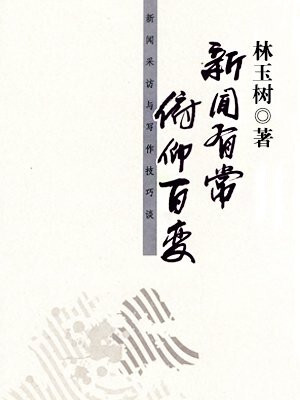 林玉树◎著
新闻有常
俯仰百变
新闻采访与写作技巧谈